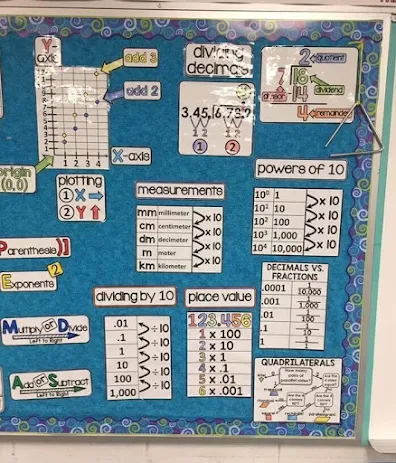 Y-axis
add 3
add 2
1 2 3 4
X-axis
origin
(0,0)
plotting
1 X →
2 Y ↑
dividing
decimals
3.45,
1 2
1 2
1 2
2 quotient
7
16
14
dividend
divisor
4 remainder
measurements
mm millimeter
cm centimeter
dm decimeter
m meter
km kilometer
x 10
x 10
x 10
x 10
powers of 10
10⁰ 1
10¹ 10
10² 100
10³ 1,000
10⁴ 10,000
x 10
x 10
x 10
x 10
Parenthesis)]
Exponents 2
Multiply or Divide
Left to Right
Add or Subtract
Left to Right
dividing by 10
.01
.1
1
10
100
1,000
÷ 10
÷ 10
÷ 10
÷ 10
÷ 10
place value
123.456
1 x 100
2 x 10
3 x 1
4 x .1
5 x .01
6 x .001
DECIMALS VS.
FRACTIONS
.0001 1/10,000
.001 1/1,000
.01 1/100
.1 1/10
1
QUADRILATERALS
How many
pairs of
parallel sides?